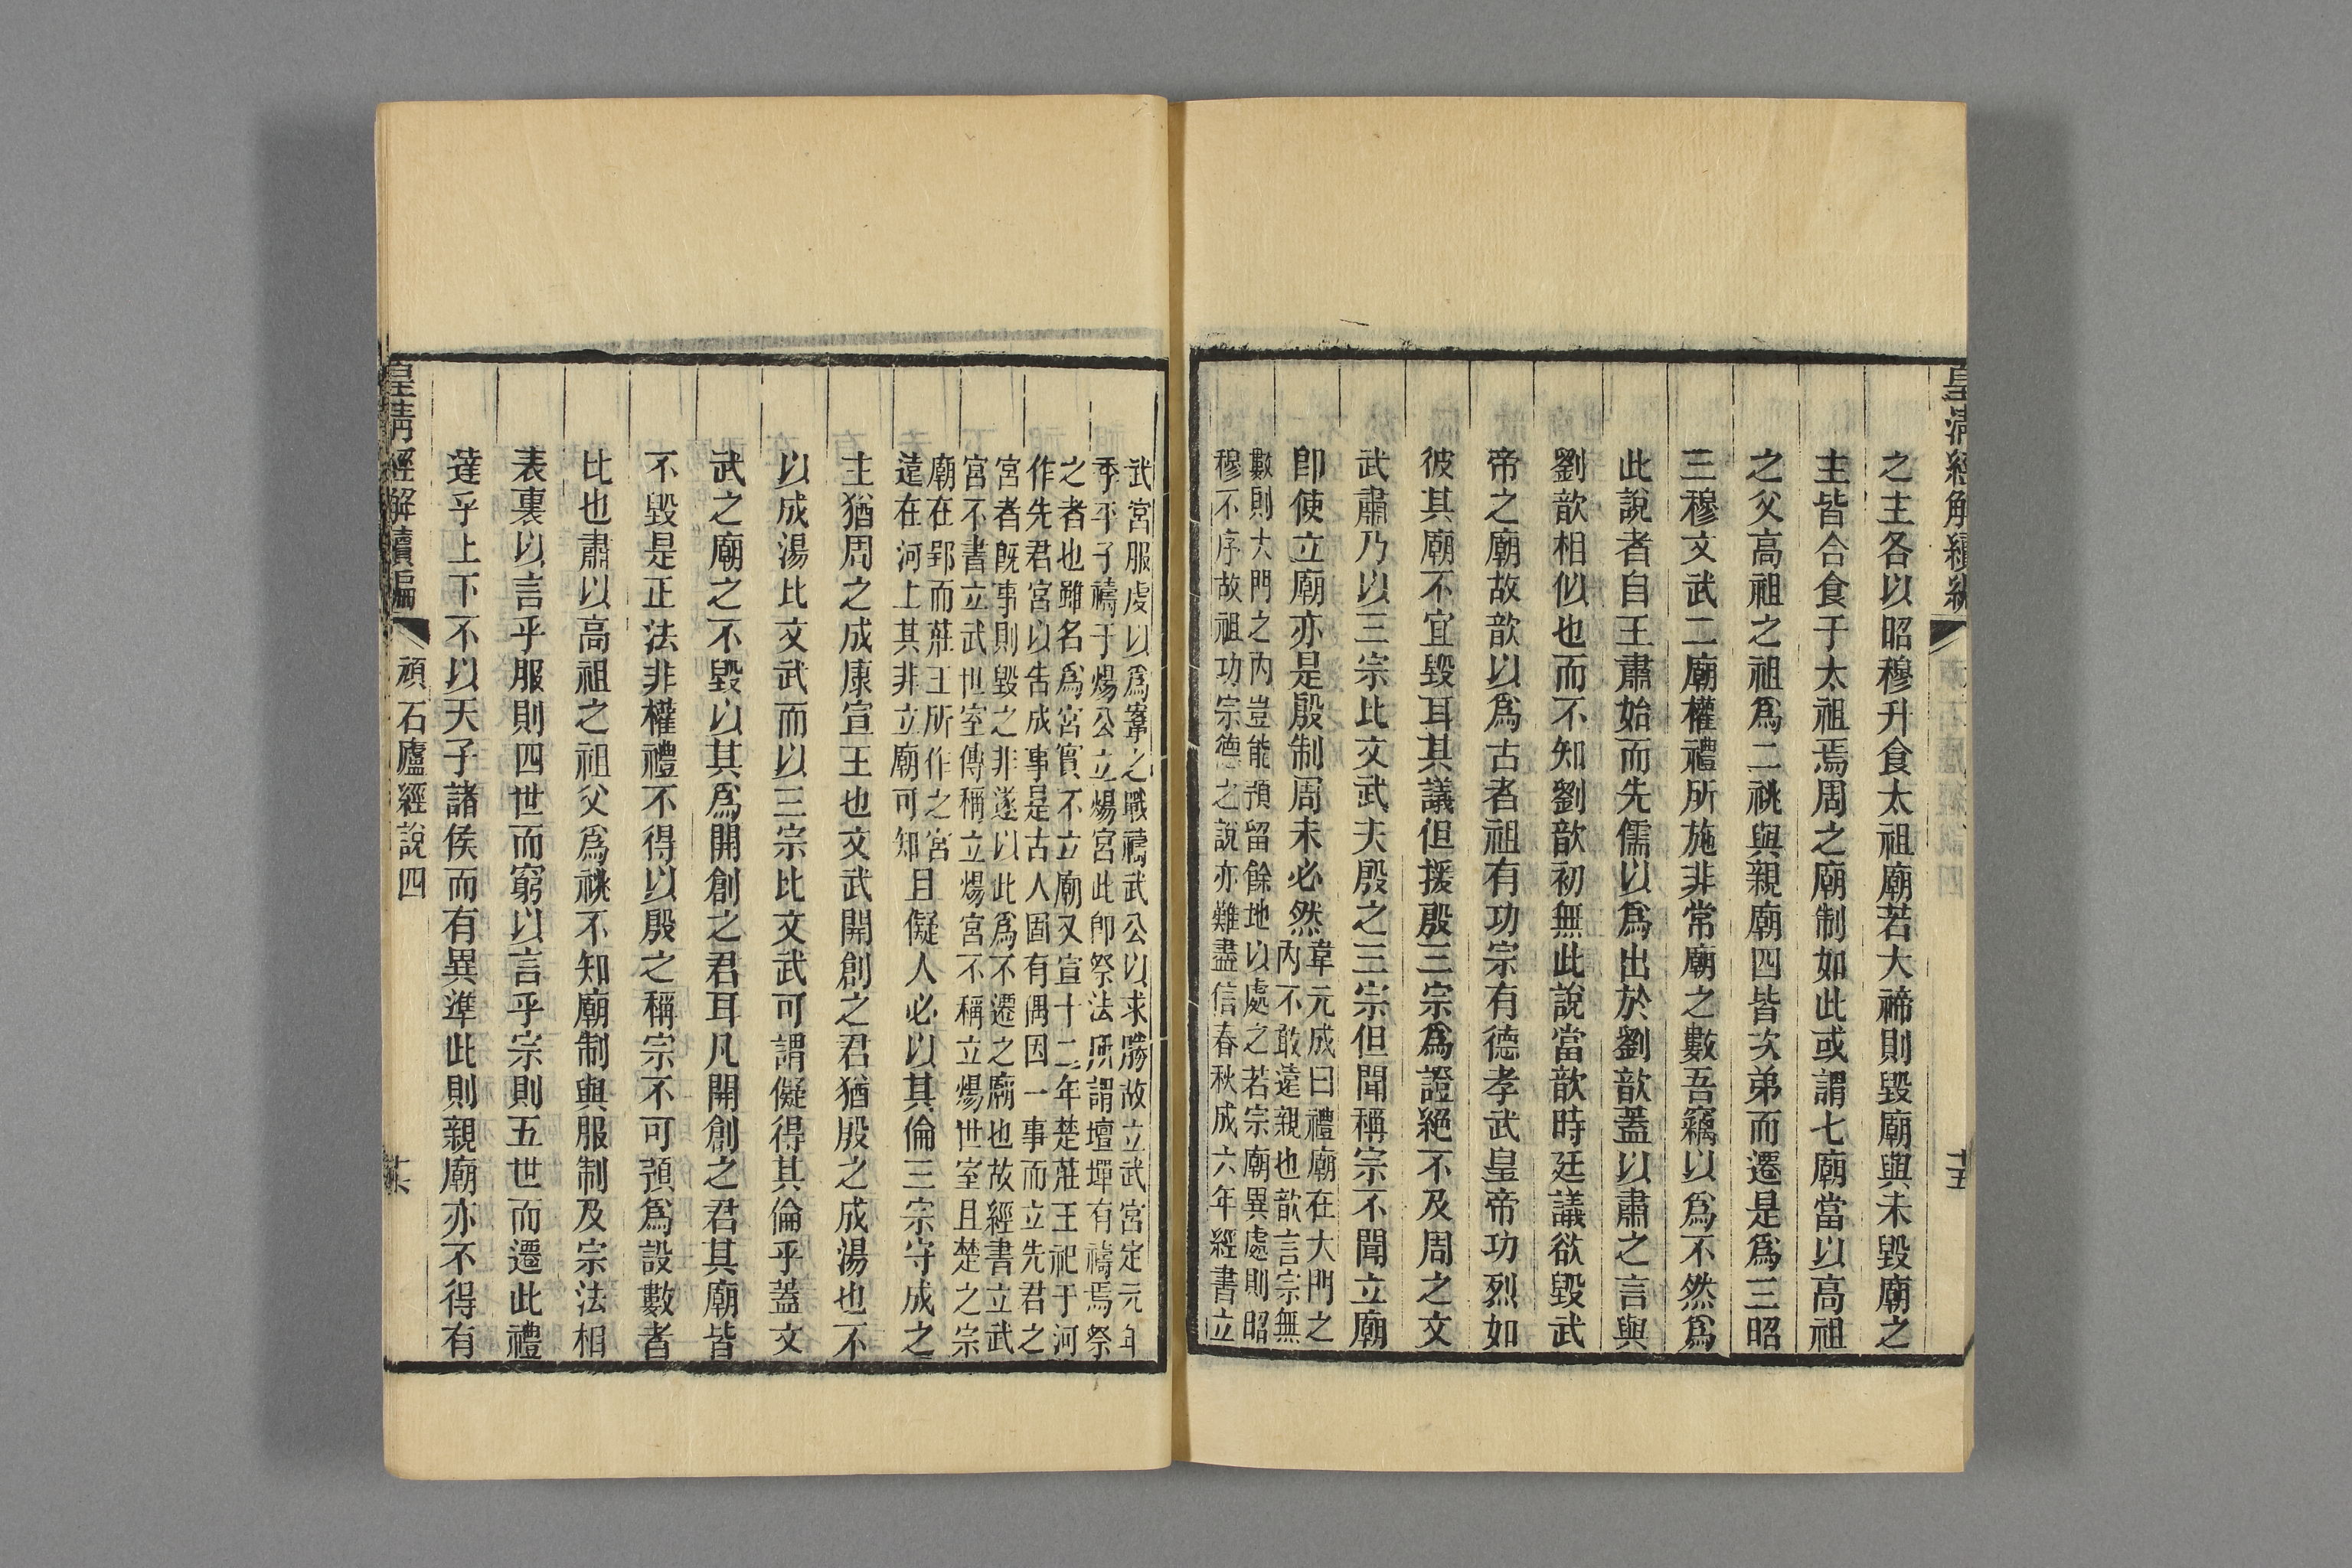 皇清經解續編
十五
之主各以昭穆升食太祖廟若大禘則毀廟與未毀廟之
主皆合食于太祖焉周之廟制如此或謂七廟當以高祖
之父高祖之祖爲二祧與親廟四皆次弟而遷是爲三昭
三穆文武二廟權禮所施非常廟之數吾竊以爲不然爲
此說者自王肅始而先儒以爲出於劉歆蓋以肅之言與
劉歆相似也而不知劉歆初無此說當歆時廷議欲毀武
帝之廟故歆以爲古者祖有功宗有德孝武皇帝功烈如
彼其廟不宜毀耳其議但援殷三宗爲證絕不及周之文
武肅乃以三宗比文武夫殷之三宗但聞稱宗不聞立廟
卽使立廟亦是殷制周未必然
韋元成曰禮廟在大門之
內不敢遠親也歆言宗無
數則大門之內豈能預留餘地以處之若宗廟異處則昭
穆不序故祖功宗德之說亦難盡信春秋成六年經書立
武宮服虔以爲鞌之戰禱武公以求勝故立武宮定元年
季平子禱于煬公立煬宮此卽祭法所謂壇墠有禱焉祭
之者也雖名爲宮實不立廟又宣十二年楚莊王祀于河
作先君宮以告成事是古人固有偶因一事而立先君之
宮者旣事則毀之非遂以此爲不遷之廟也故經書立武
宮不書立武世室傳稱立煬宮不稱立煬世室且楚之宗
廟在郢而莊王所作之宮
遠在河上其非立廟可知
且儗人必以其倫三宗守成之
主猶周之成康宣王也文武開創之君猶殷之成湯也不
以成湯比文武而以三宗比文武可謂儗得其倫乎蓋文
武之廟之不毀以其爲開創之君耳凡開創之君其廟皆
不毀是正法非權禮不得以殷之稱宗不可預爲設數者
比也肅以高祖之祖父爲祧不知廟制與服制及宗法相
表裏以言乎服則四世而窮以言乎宗則五世而遷此禮
達乎上下不以天子諸侯而有異準此則親廟亦不得有
皇清經解續編
頑石廬經說四